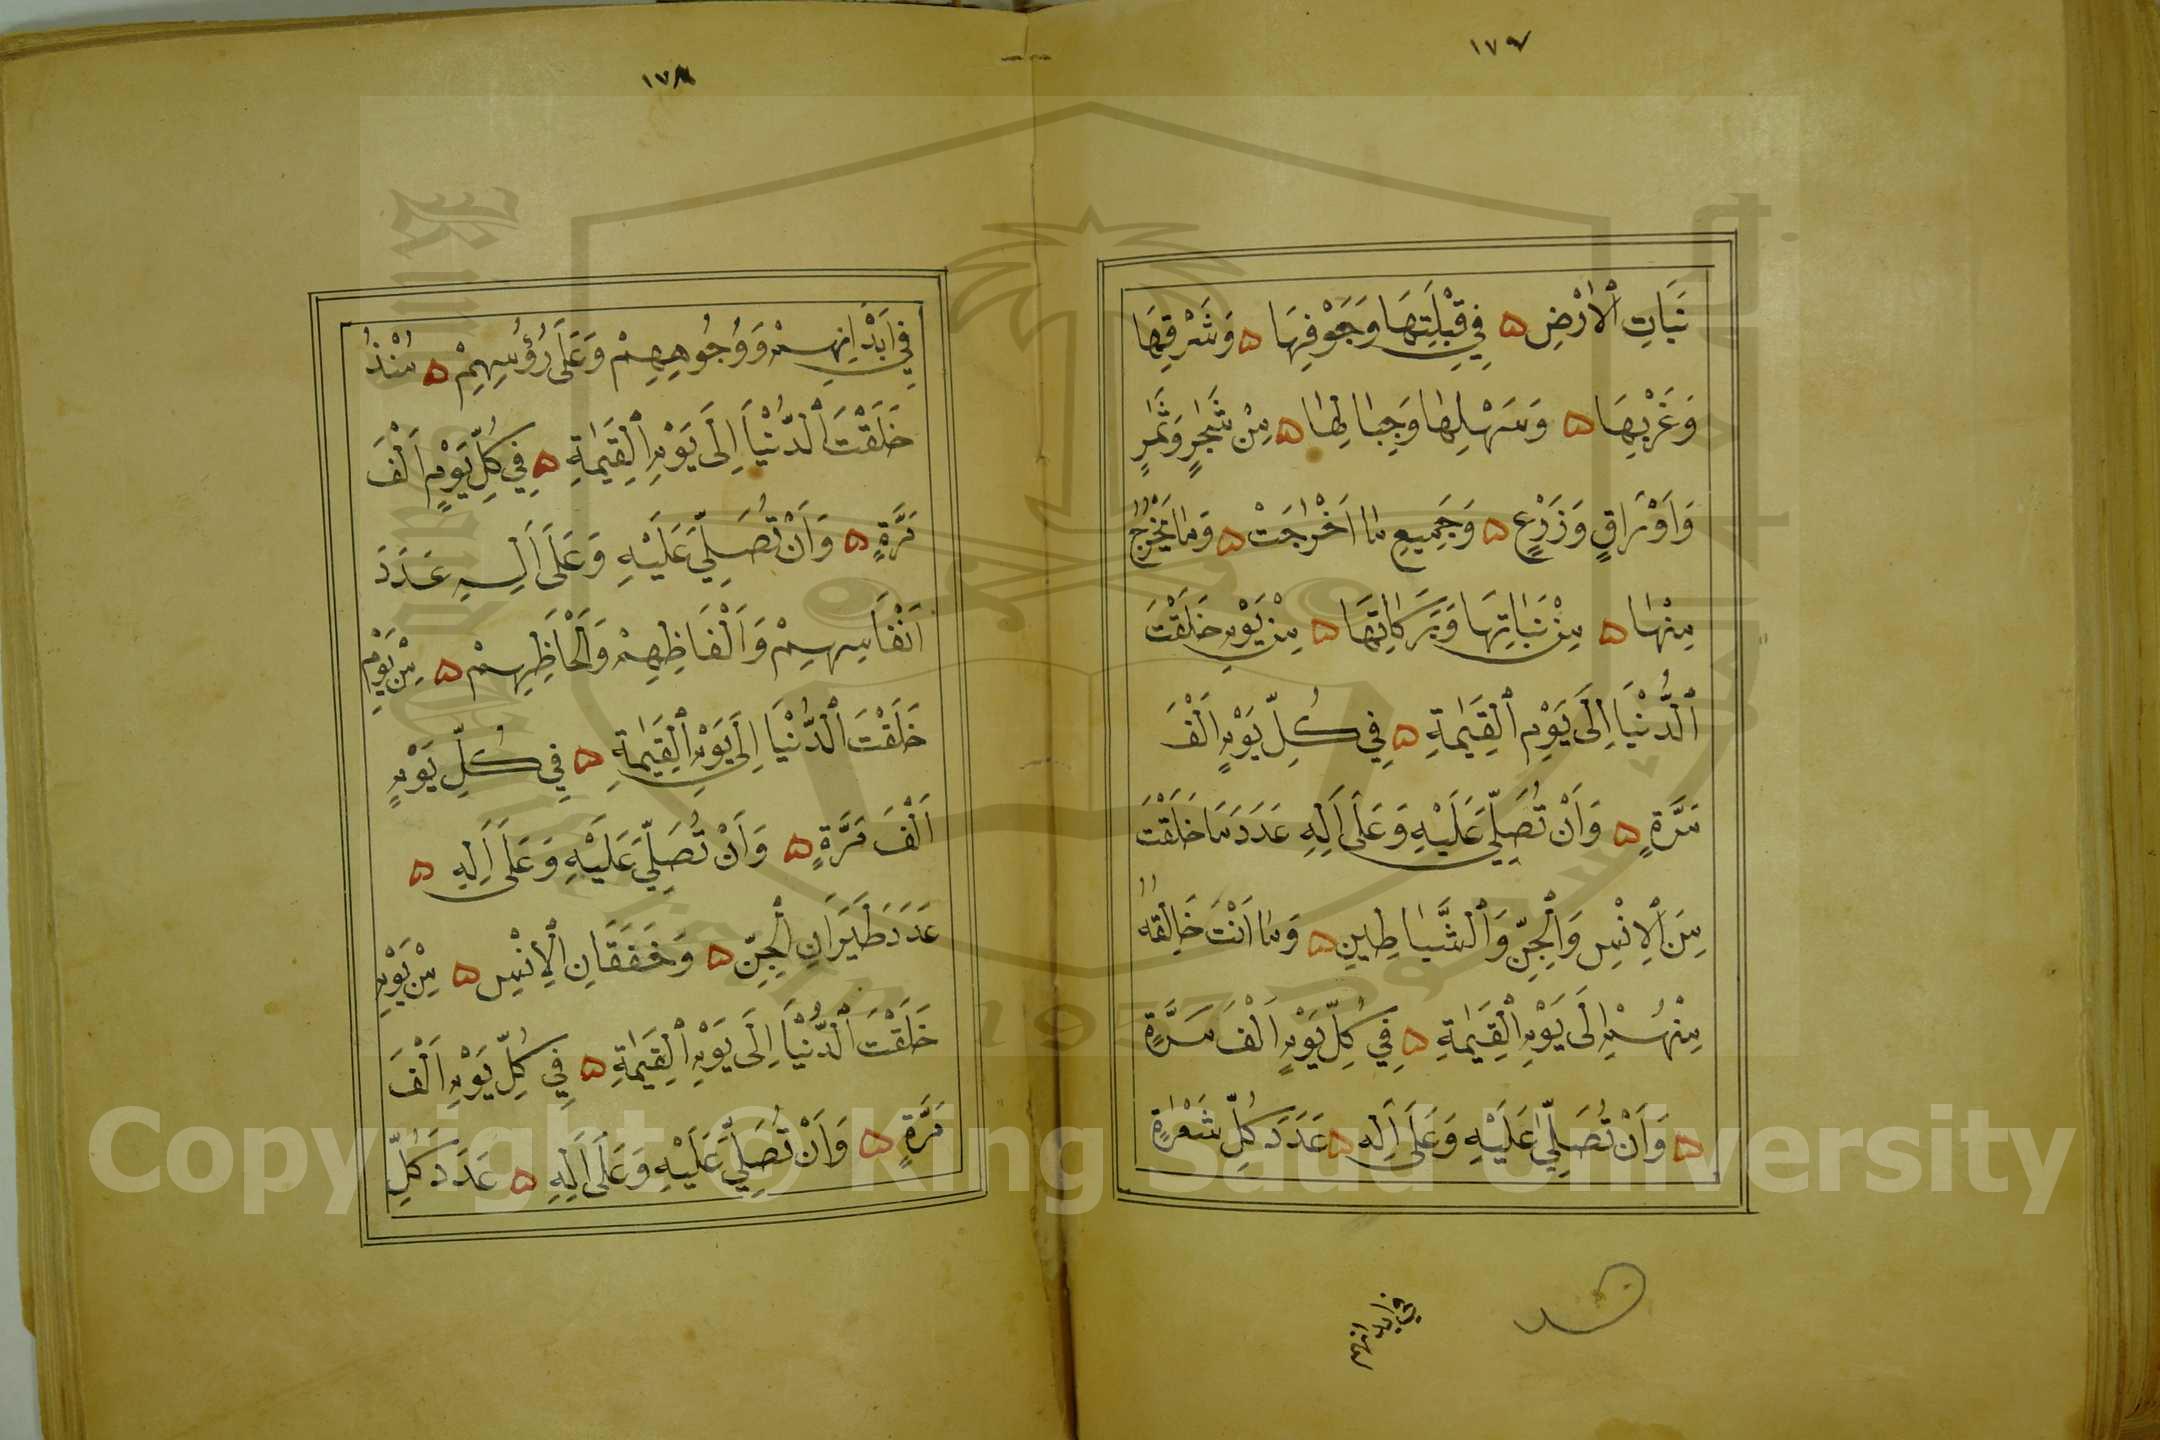 ١٧٧
نَبَاتِ ٱلْاَرْضِ ۞ فِي قِبْلَتِهَا وَجَوْفِهَا ۞ وَشَرْقِهَا
وَغَرْبِهَا ۞ وَسَهْلِهَا وَجِبَالِهَا ۞ مِنْ شَجَرٍ وَثَمَرٍ
وَاَوْرَاقٍ وَزَرْعٍ ۞ وَجَمِيعِ مَا اَخْرَجَتْ ۞ وَمَا يَخْرُجُ
مِنْهَا ۞ مِنْ نَبَاتِهَا وَبَرَكَاتِهَا ۞ مِنْ يَوْمِ خَلَقْتَ
ٱلدُّنْيَا اِلَى يَوْمِ ٱلْقِيَمَةِ ۞ فِي كُلِّ يَوْمٍ اَلْفَ
مَرَّةٍ ۞ وَاَنْ تُصَلِّيَ عَلَيْهِ وَعَلَى اَلِهِ عَدَدَ مَا خَلَقْتَ
مِنَ ٱلْاِنْسِ وَٱلْجِنِّ وَٱلشَّيَاطِينِ ۞ وَمَا اَنْتَ خَالِقُهُ
مِنْهُمْ اِلَى يَوْمِ ٱلْقِيَمَةِ ۞ فِي كُلِّ يَوْمٍ اَلْفَ مَرَّةٍ
۞ وَاَنْ تُصَلِّيَ عَلَيْهِ وَعَلَى اَلِهِ ۞ عَدَدَ كُلِّ شَعْرَةٍ
في ابدانهم
١٧٨
فِي اَبْدَانِهِمْ وَوُجُوهِهِمْ وَعَلَى رُؤُسِهِمْ ۞ مُنْذُ
خَلَقْتَ ٱلدُّنْيَا اِلَى يَوْمِ ٱلْقِيَمَةِ ۞ فِي كُلِّ يَوْمٍ اَلْفَ
مَرَّةٍ ۞ وَاَنْ تُصَلِّيَ عَلَيْهِ وَعَلَى اَلِهِ عَدَدَ
اَنْفَاسِهِمْ وَاَلْفَاظِهِمْ وَاَلْحَاظِهِمْ ۞ مِنْ يَوْمِ
خَلَقْتَ ٱلدُّنْيَا اِلَى يَوْمِ ٱلْقِيَمَةِ ۞ فِي كُلِّ يَوْمٍ
اَلْفَ مَرَّةٍ ۞ وَاَنْ تُصَلِّيَ عَلَيْهِ وَعَلَى اَلِهِ ۞
عَدَدَ طَيَرَانِ ٱلْجِنِّ ۞ وَخَفَقَانِ ٱلْاِنْسِ ۞ مِنْ يَوْمِ
خَلَقْتَ ٱلدُّنْيَا اِلَى يَوْمِ ٱلْقِيَمَةِ ۞ فِي كُلِّ يَوْمٍ اَلْفَ
مَرَّةٍ ۞ وَاَنْ تُصَلِّيَ عَلَيْهِ وَعَلَى اَلِهِ ۞ عَدَدَ كُلِّ
Copyright © King Saud University
1957